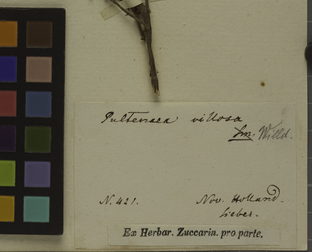 Pultenaea villosa
Sm. Willd.
N. 421. Nov. Holland.
Sieber.
Ex Herbar. Zuccarin. pro parte.